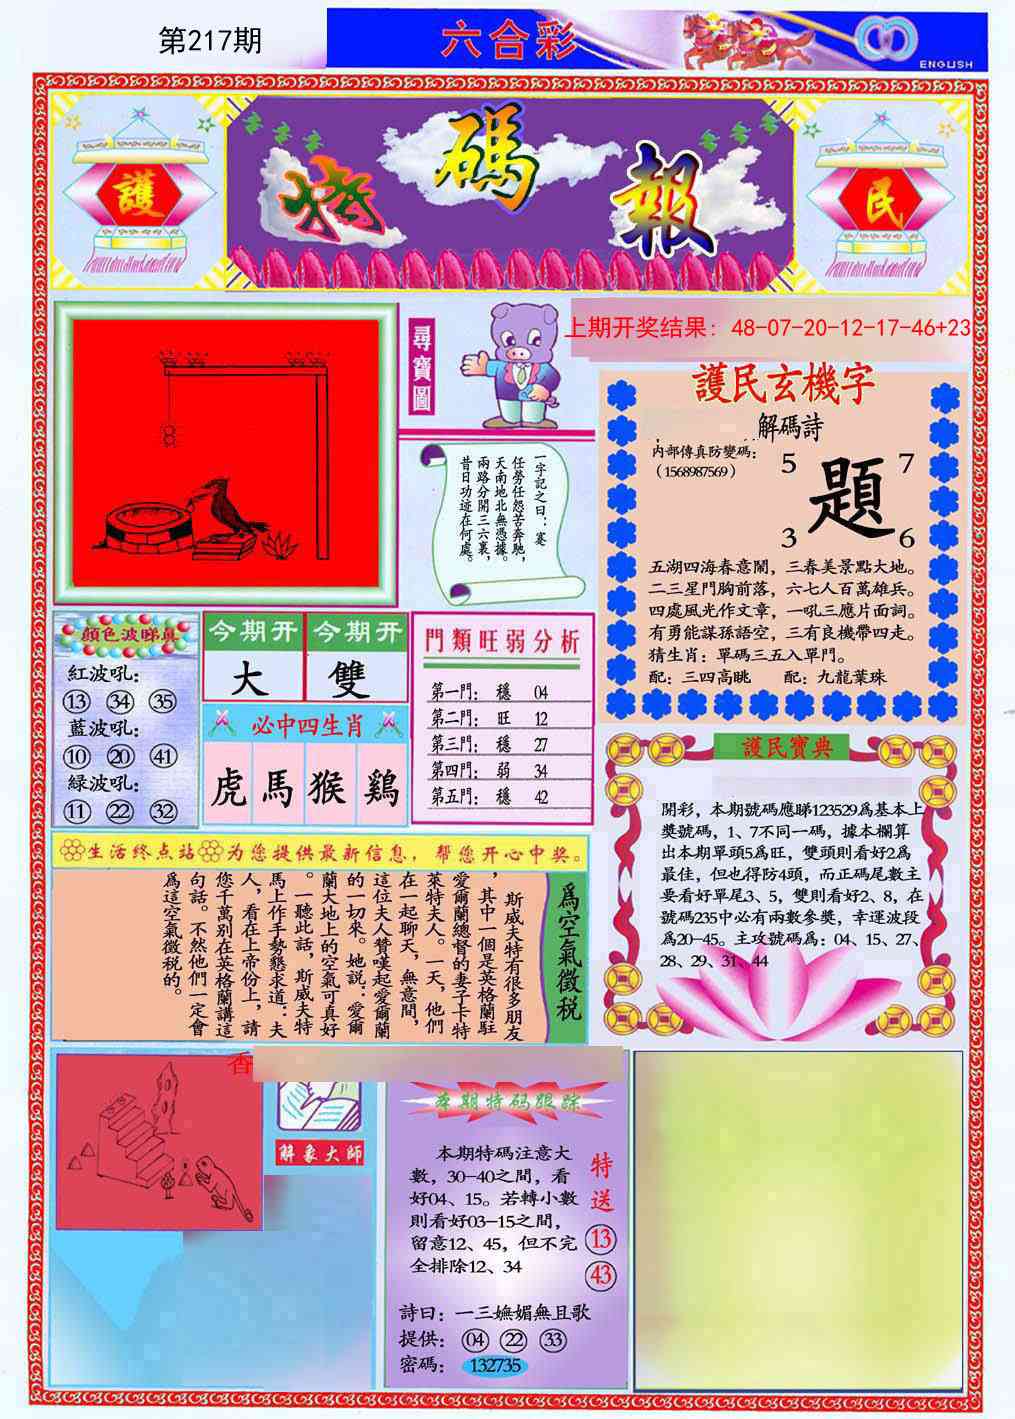 第217期
六合彩
ENGLISH
護
特碼報
民
尋寶圖
上期开奖结果：48-07-20-12-17-46+23
一字記之曰：寔
任勞任怨苦奔馳，
天南地北無憑據。
兩路分開三六裏，
昔日功迹在何處。
護民玄機字
解碼詩
内部傳真防變碼：
（1568987569）
5
7
題
3
6
五湖四海春意闌，三春美景點大地。
二三星門胸前落，六七人百萬雄兵。
四處風光作文章，一吼三應片面詞。
有勇能謀孫語空，三有良機帶四走。
猜生肖：單碼三五入單門。
配：三四高眺　配：九龍葉珠
顔色波睇真
紅波吼：
13 34 35
藍波吼：
10 20 41
緑波吼：
11 22 32
今期开 今期开
大 雙
必中四生肖
虎 馬 猴 鷄
門類旺弱分析
第一門： 穩 04
第二門： 旺 12
第三門： 穩 27
第四門： 弱 34
第五門： 穩 42
護民寶典
開彩，本期號碼應睇123529爲基本上
獎號碼，1、7不同一碼，據本欄算
出本期單頭5爲旺，雙頭則看好2爲
最佳，但也得防4頭，而正碼尾數主
要看好單尾3、5，雙則看好2、8，在
號碼235中必有兩數参獎，幸運波段
爲20—45。主攻號碼爲：04、15、27、
28、29、31、44
生活终点站 为您提供最新信息，帮您开心中奖。
爲空氣徵税
斯威夫特有很多朋友
，其中一個是英格蘭駐
愛爾蘭總督的妻子卡特
萊特夫人。一天，他們
在一起聊天，無意間，
這位夫人贊嘆起愛爾蘭
的一切來。她説：愛爾
蘭大地上的空氣可真好
。一聽此話，斯威夫特
馬上作手勢懇求道：夫
人，看在上帝份上，請
您千萬别在英格蘭講這
句話。不然他們一定會
爲這空氣徵税的。
香
解象大師
本期特码跟踪
本期特碼注意大
數，30—40之間，看
好04、15。若轉小數
則看好03—15之間，
留意12、45，但不完
全排除12、34
特送
13
43
詩曰：一三嫵媚無且歌
提供： 04 22 33
密碼： 132735